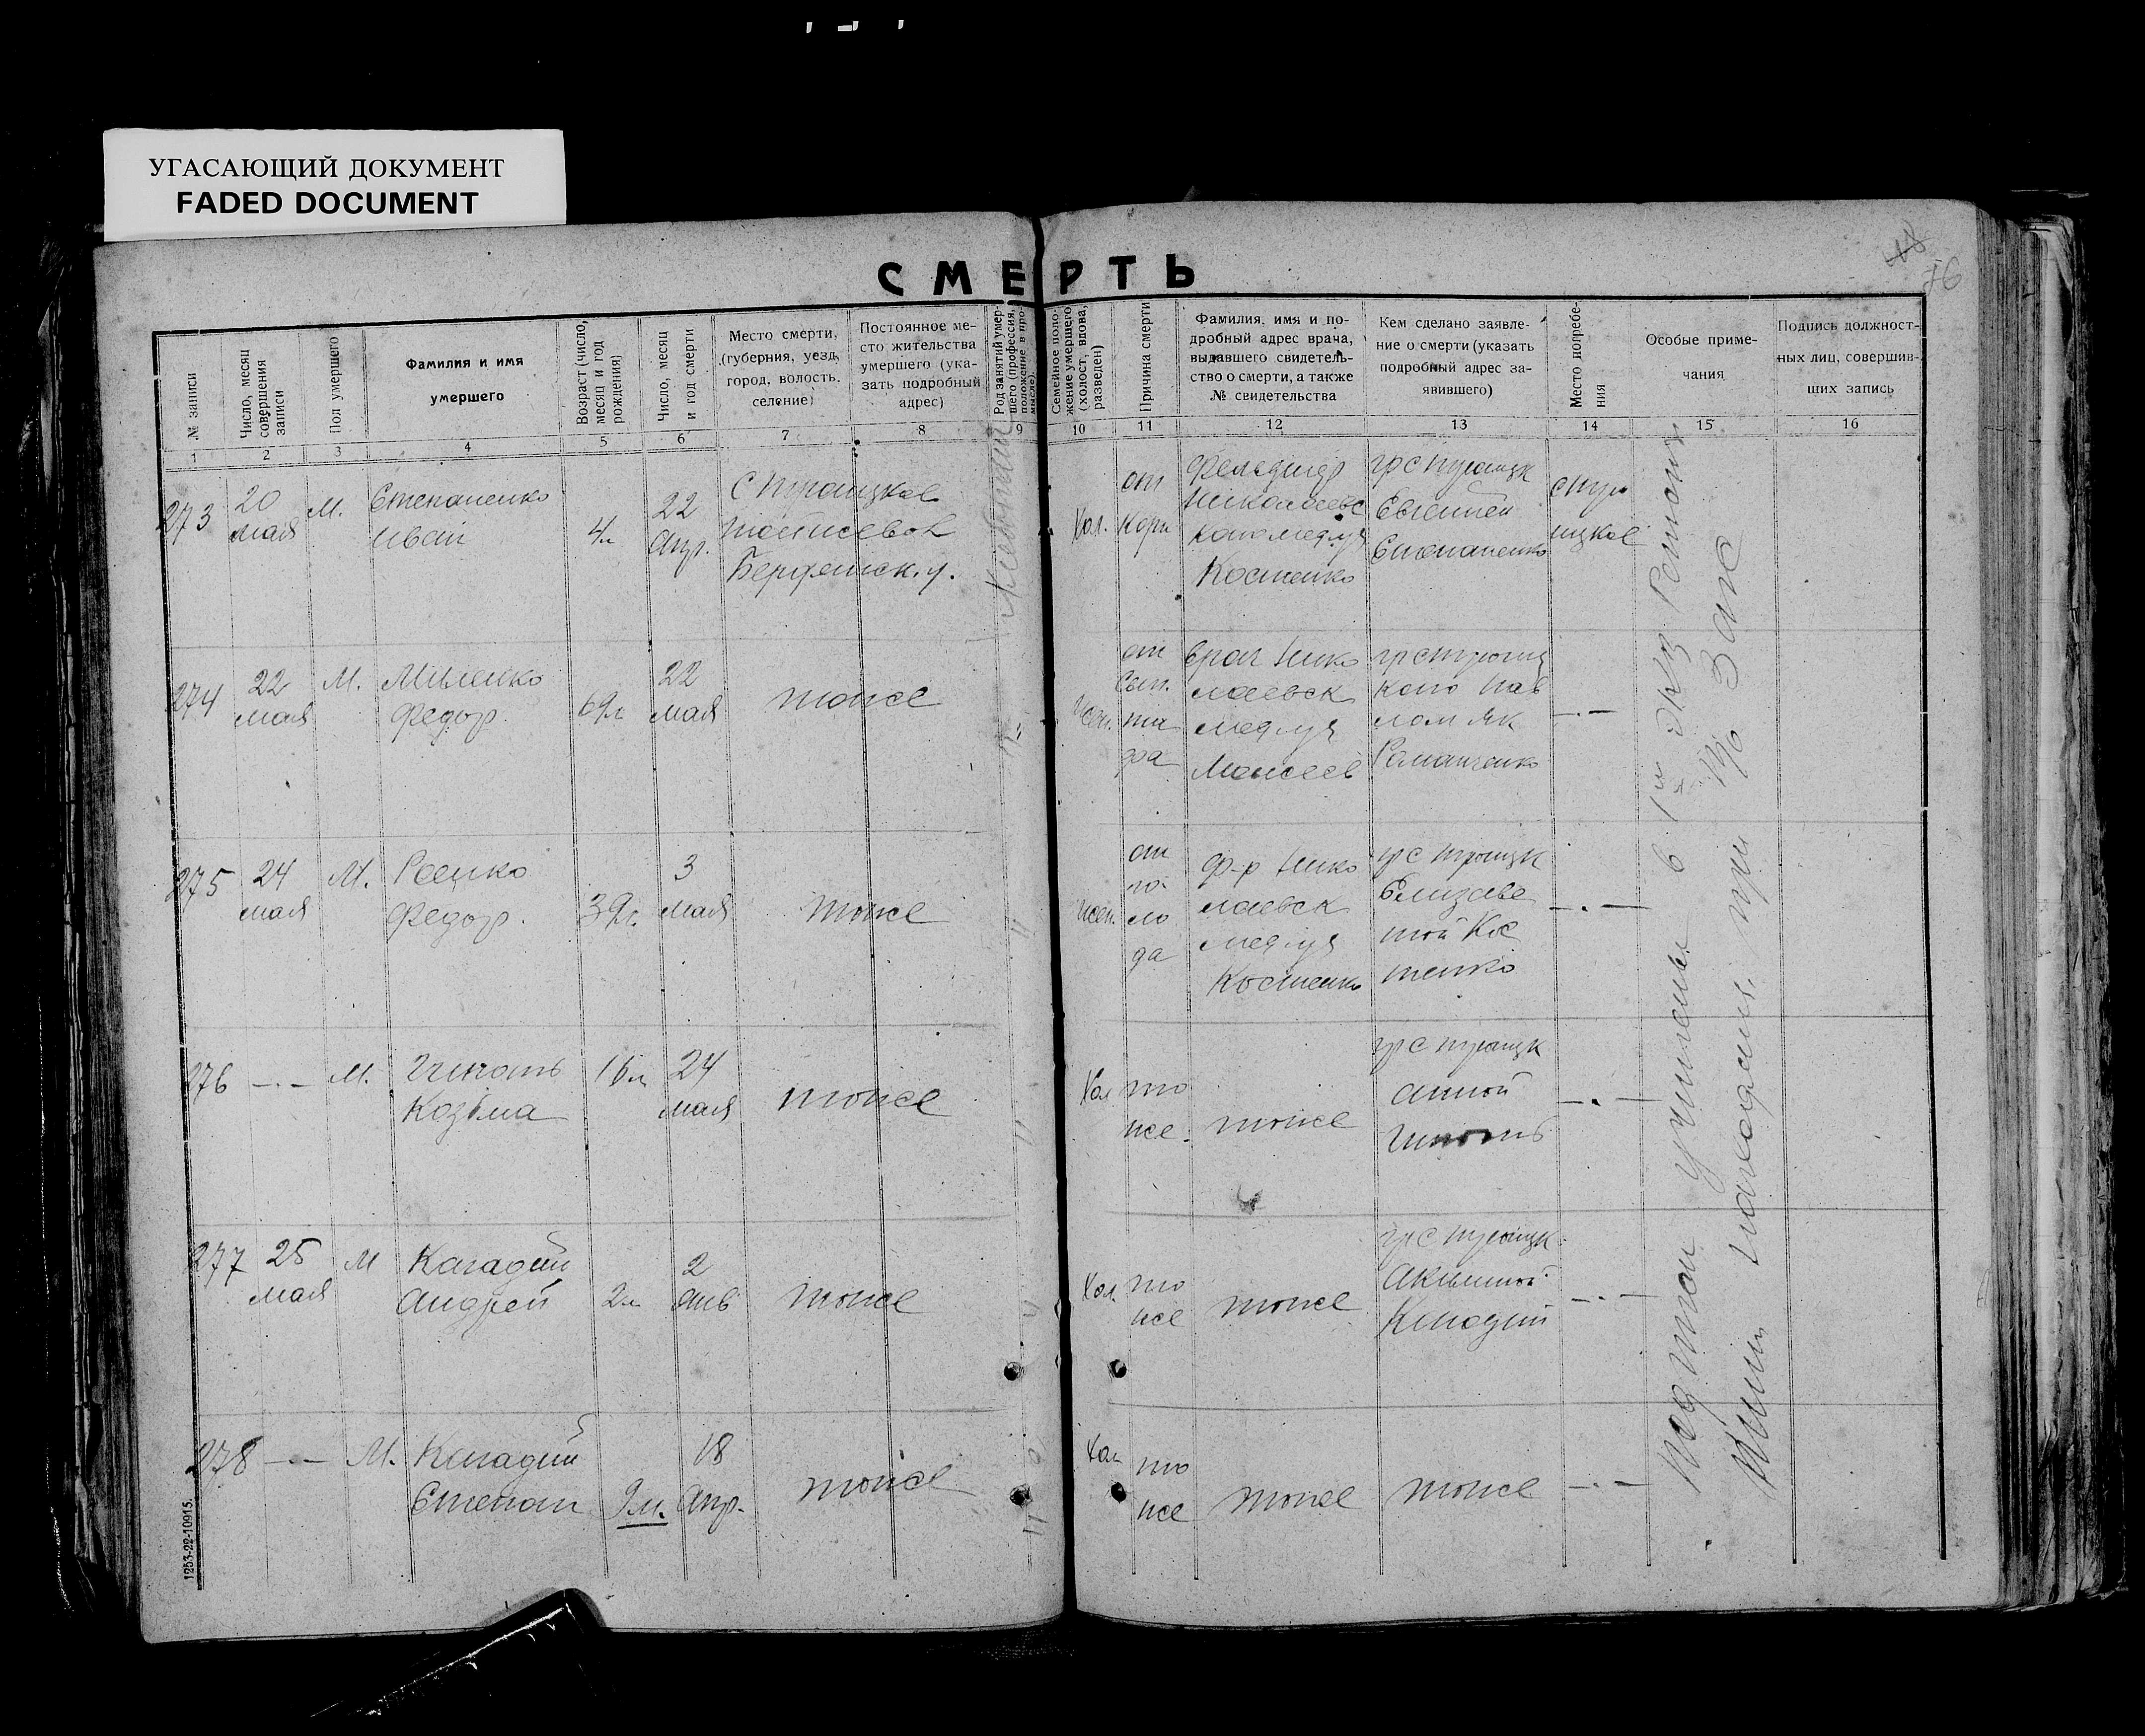 УГАСАЮЩИЙ ДОКУМЕНТ
FADED DOCUMENT
СМЕРТЬ
18
76
№ записи
Число, месяц
совершения
записи
Пол умершего
Фамилия и имя
умершего
Возраст (число,
месяц и год
рождения)
Число, месяц
и год смерти
Место смерти,
(губерния, уезд,
город, волость,
селение)
Постоянное ме-
сто жительства
умершего (ука-
зать подробный
адрес)
Род занятий умер-
шего (профессия,
положение в про-
мысле)
Семейное поло-
жение умершего
(холост, вдова,
разведен)
Причина смерти
Фамилия, имя и по-
дробный адрес врача,
выдавшего свидетель-
ство о смерти, а также
№ свидетельства
Кем сделано заявле-
ние о смерти (указать
подробный адрес за-
явившего)
Место погребе-
ния
Особые приме-
чания
Подпись должност-
ных лиц, совершив-
ших запись
1 2 3 4 5 6 7 8 9 10 11 12 13 14 15 16
273
20
мая
М.
Степаненко
Иван
4л
22
Апр.
с Троицкое
Бердянск. у.
Хол.
от
кори
Фельдшер
Николаевс
кого медуч
Костенко
гр с Троицк
Евгенией
Степаненко
с Трои
ицкое
274
22
мая
М.
Миленко
Федор.
69л
22
мая
тоже
"
жен.
от
сып.
ти
фа
Врач Нико
лаевск
медуч
Моисеев
гр с Троиц
кого Пав
лом Як
Романченко
—·—
275
24
мая
М.
Федор.
39л.
3
мая
тоже
"
жен.
от
го
ло
да
ф-р Нико
лаевск
медуч
Костенко
гр с Троицк
Елизаве
той Кос
тенко
—·—
276
—·—
М.
Козьма
16л
24
мая
тоже
"
Хол
то
же.
тоже
гр с Троицк
Анной
—·—
277
25
мая
М
Кагадий
Андрей
2л
2
Янв
тоже
"
Хол.
то
же
тоже
гр с Троицк.
Акилиной
Кагадий
—·—
278
—·—
М.
Кагадий
Степан
9м.
18
Апр.
тоже
"
Хол
то
же
тоже
тоже
—·—
в 1м экз
при
1253-22-10915.